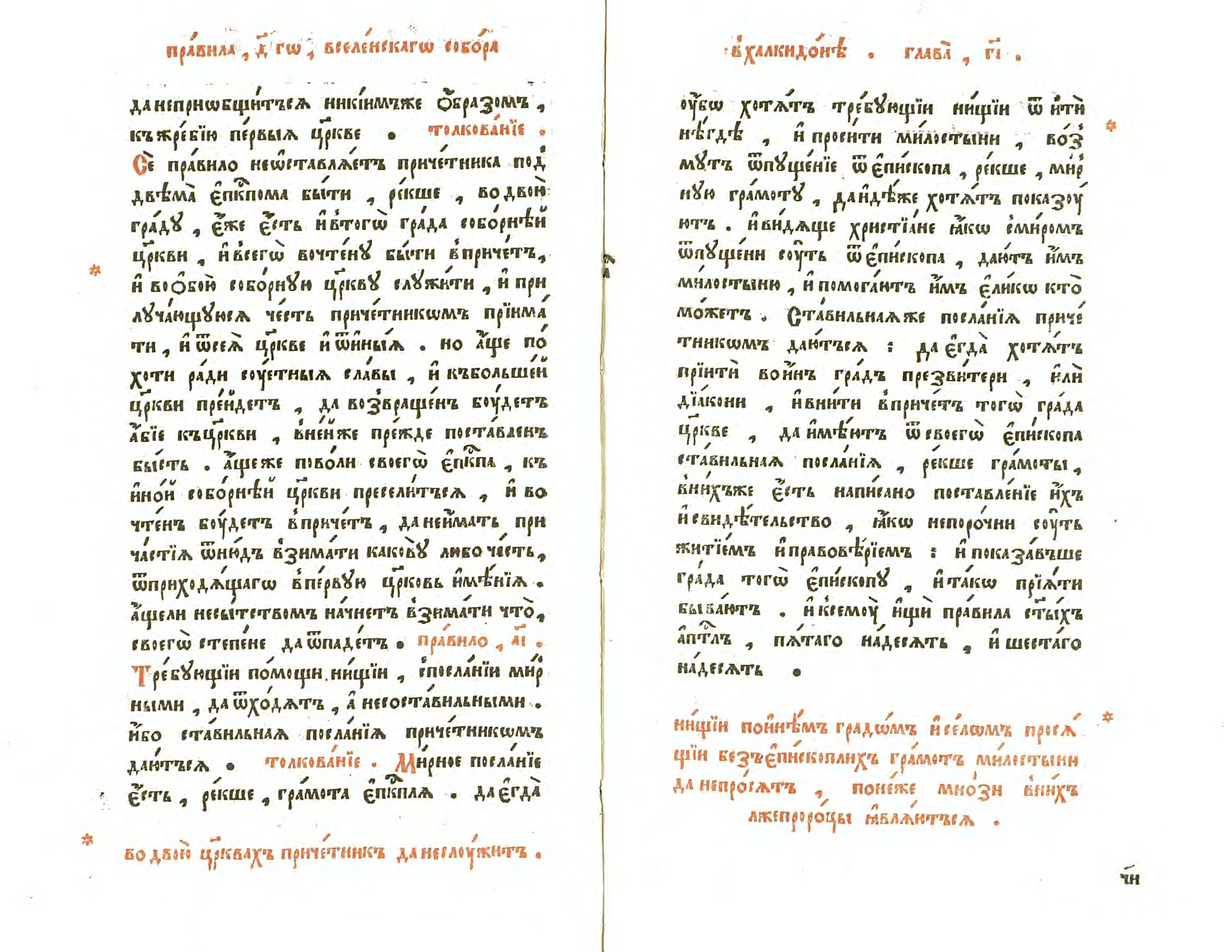 пра́вила , д҃ гѡ , вселе́нскагѡ собо́ра
да неприѡбщи́тъсѧ никі́имъже ѻ́бразомъ ,
къ жре́бїю пе́рвыѧ цр҃кве . толкова́нїе .
Сѐ пра́вило неѡставлѧ́етъ приче́тника под̾
двѣма̀ є҆пкⷭ҇пома бы́ти , ре́кше , во двою̀
гра́ду , е҆́же е҆́сть и҆ втогѡ̀ гра́да собо́рнѣй
цр҃кви , и҆ всегѡ̀ вочте́нꙋ бы́ти впричетъ ,
и҆ во ѻ҆бою̀ собо́рнꙋю цр҃квꙋ слꙋжи́ти , и҆ при
лꙋча́ющꙋюсѧ че́сть приче́тникѡмъ прїима́
ти , и҆ ѿсеѧ̀ цр҃кве и҆ ѿи́ныѧ . но а҆́ще по́
хоти ра́ди соу́етныѧ сла́вы , и҆ къ бо́льшей
цр҃кви пре́йдетъ , да возвраще́нъ боу́детъ
а҆́бїе къ цр҃кви , вне́йже пре́жде поста́вленъ
бы́сть . а҆́щеже пово́ли своегѡ̀ є҆пкⷭ҇па , къ
и҆но́й собо́рнѣй цр҃кви пресели́тъсѧ , и҆ во
чте́нъ боу́детъ впричетъ , да неи́мать при
ча́стїѧ ѿню́дъ взима́ти каковꙋ̀ любо че́сть ,
ѿприходѧ́щагѡ впе́рвꙋю цр҃ковь и҆мѣ́нїѧ .
а҆́щели несы́тствомъ на́чнетъ взима́ти что̀ ,
своегѡ̀ сте́пене да ѿпаде́тъ . пра́вило , а҃і .
Тре́бꙋющїи по́мощи ни́щїи , спосла́нїи ми́р
ными , да ѿхо́дѧтъ , а҆ несоста́вильными .
и҆́бо ста́вильнаѧ посла́нїѧ приче́тникѡмъ
даю́тъсѧ . толкова́нїе . Ми́рное посла́нїе
е҆́сть , ре́кше , гра́мота є҆пкⷭ҇плѧ . да є҆гда̀
во двою̀ цр҃квахъ приче́тникъ да неслоу́житъ .
вхалкидо́нѣ . глава̀ , г҃і .
оу҆́бѡ хотѧ́тъ тре́бꙋющїи ни́щїи ѿитѝ
нѣ́гдѣ , и҆ проси́ти ми́лостыни , во́з
мꙋтъ ѿпꙋще́нїе ѿ є҆пи́скопа , ре́кше , ми́р
нꙋю гра́мотꙋ , да и҆дѣ́же хотѧ́тъ показоу́
ютъ . и҆ ви́дѧще христїа́не ꙗ҆́кѡ сми́ромъ
ѿпꙋще́ни соу́ть ѿ є҆пи́скопа , даю́тъ и҆̀мъ
ми́лостыню , и҆ помога́ютъ и҆̀мъ є҆ли́кѡ кто̀
мо́жетъ . Ста́вильнаѧже посла́нїѧ приче́
тникѡмъ даю́тъсѧ : да є҆гда̀ хотѧ́тъ
прїитѝ во и҆́нъ гра́дъ презви́тери , и҆лѝ
дїа́кони , и҆ вни́ти впричетъ тогѡ̀ гра́да
цр҃кве , да и҆мѣ́ютъ ѿ своегѡ̀ є҆пи́скопа
ста́вильнаѧ посла́нїѧ , ре́кше гра́моты ,
вни́хъже е҆́сть напи́сано поставле́нїе и҆́хъ
и҆ свидѣ́тельство , ꙗ҆́кѡ непоро́чни соу́ть
житїе́мъ и҆ правовѣ́рїемъ : и҆ показа́въше
гра́да тогѡ̀ є҆пи́скопꙋ , и҆ та́кѡ прїѧ́ти
быва́ютъ . и҆ ксемоу̀ и҆щѝ пра́вила ст҃ы́хъ
а҆пⷭ҇тлъ , пѧ́таго на́десѧть , и҆ шеста́го
на́десѧть .
ни́щїи пои́нѣмъ градѡ́мъ и҆ се́лѡмъ просѧ́
щїи безъ є҆пи́скоплихъ гра́мотъ ми́лостыни
да непро́сѧтъ , поне́же мно́зи вни́хъ
лжепроро́цы ꙗ҆влѧ́ютъсѧ .
ч҃и